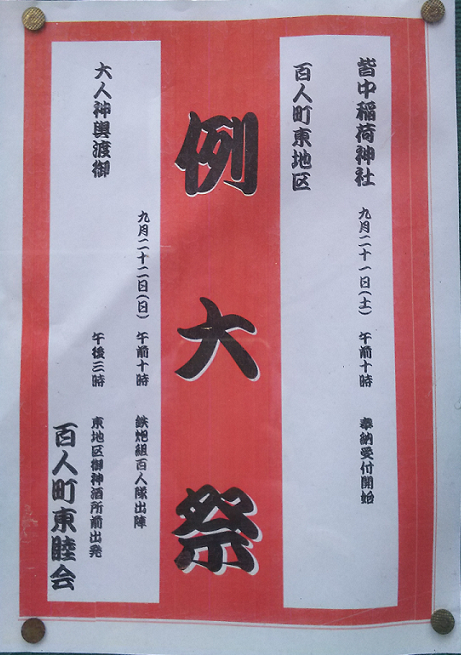 皆中稲荷神社 九月二十一日(土) 午前十時 奉納受付開始
百人町東地区
例大祭
九月二十二日(日) 午前十時 鉄炮組百人隊出陣
大人神輿渡御 午後三時 東地区御神酒所前出発
百人町東睦会